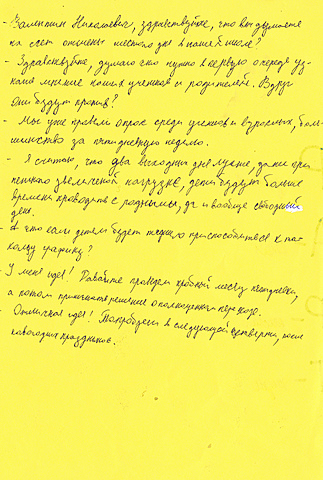 - Валентин Николаевич, здравствуйте, что вы думаете
на счет отмены шестого дня в нашей школе?
- Здравствуйте, думаю что нужно в первую очередь уз-
нать мнение наших учеников и родителей. Вдруг
они будут против?
- Мы уже провели опрос среди учеников и взрослых, боль-
шинство за пятидневную неделю.
- Я считаю, что два выходных дня лучше, даже при
увеличенной нагрузке, дети будут больше
времени проводить с родными, да и вообще свободный
день.
- А что если детям будет трудно приспособиться к та-
кому графику?
- У меня идея! Давайте проведем пробный месяц пятидневки,
а потом примем решение о полноценном переходе.
- Отличная идея! Попробуем в следующей четверти, после
новогодних праздников.